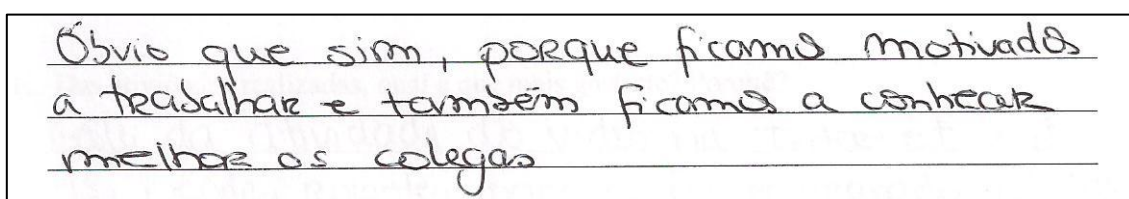 Óbvio que sim, porque ficamos motivados
a trabalhar e também ficamos a conhecer
melhor os colegas